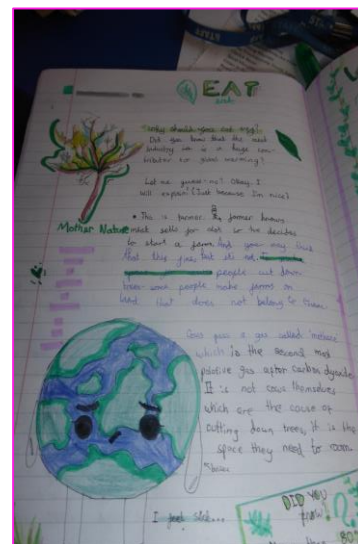 EAT
Why should you not
Did you know that the meat
industry is a huge con-
tributor to global warming?
Let me guess-no? Okay, I
will explain! (Just because I'm nice)
• This is farmer. farmer knows
Mother Nature
meat sells for alot so he decides
to start a farm. And you may think
that this fine, but its not.
people cut down
trees people make farms on
land that does not belong to them.
Cows pass a gas called
which is the second most
gas after carbon
It is not cows themselves
which are the cause of
cutting down trees, it is the
space they need to roam
I feel sick...
DID YOU
know?